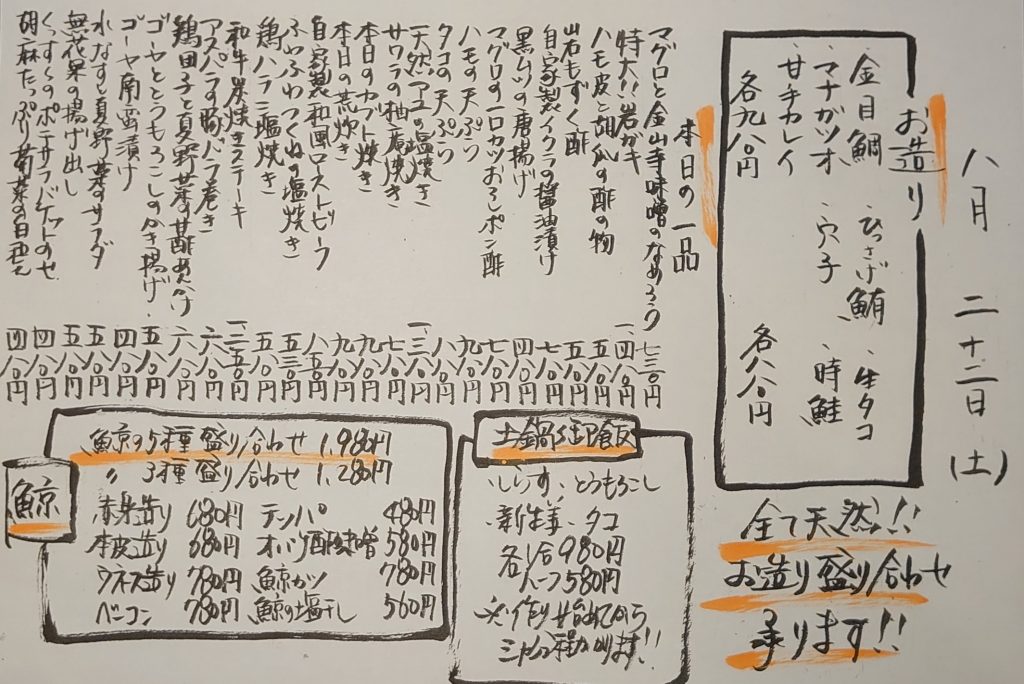 八月 二十二日(土)
お造り
金目鯛 ひっさげ鮪 ・生タコ
・マナガツオ ・穴子 ・時鮭
・甘手カレイ
各九八〇円 各八八〇円
全て天然!!
お造り盛り合わせ
承ります!!
本日の一品
マグロと金山寺味噌のなめろう 七三〇円
特大!!岩ガキ 一、四八〇円
ハモ皮と胡瓜の酢の物 五八〇円
岩もずく酢 五八〇円
自家製イクラの醤油漬け 七八〇円
黒ムツの唐揚げ 四八〇円
マグロの一口カツおろしポン酢 七八〇円
ハモの天ぷら 九八〇円
タコの天ぷら 八八〇円
天然アユの塩焼き 一、三八〇円
サワラの柚庵焼き 七八〇円
本日のカブト焼き 九八〇円
本日の荒炊き 九八〇円
自家製和風ローストビーフ 八八〇円
ふわふわつくねの塩焼き 五三〇円
鶏ハラミ塩焼き 五八〇円
和牛炭焼きステーキ 一、三五〇円
アスパラの豚バラ巻き 六八〇円
鶏団子と夏野菜の甘酢あんかけ 六八〇円
ゴーヤととうもろこしのかき揚げ 五八〇円
ゴーヤ南蛮漬け 四八〇円
水なすと夏野菜のサラダ 五八〇円
無花果の揚げ出し 五八〇円
ポテサラバゲットのせ 四八〇円
胡麻たっぷり菊菜の白和え 四八〇円
土鍋御飯
・しらす、とうもろこし
・新生姜・タコ
各1合980円
ハーフ580円
鯨
鯨の5種盛り合わせ 1,980円
〃 3種盛り合わせ 1,280円
赤身造り 680円 テッパ 480円
本皮造り 680円 オバケ酢味噌 580円
ウネス造り 780円 鯨カツ 780円
ベーコン 780円 鯨の塩干し 560円